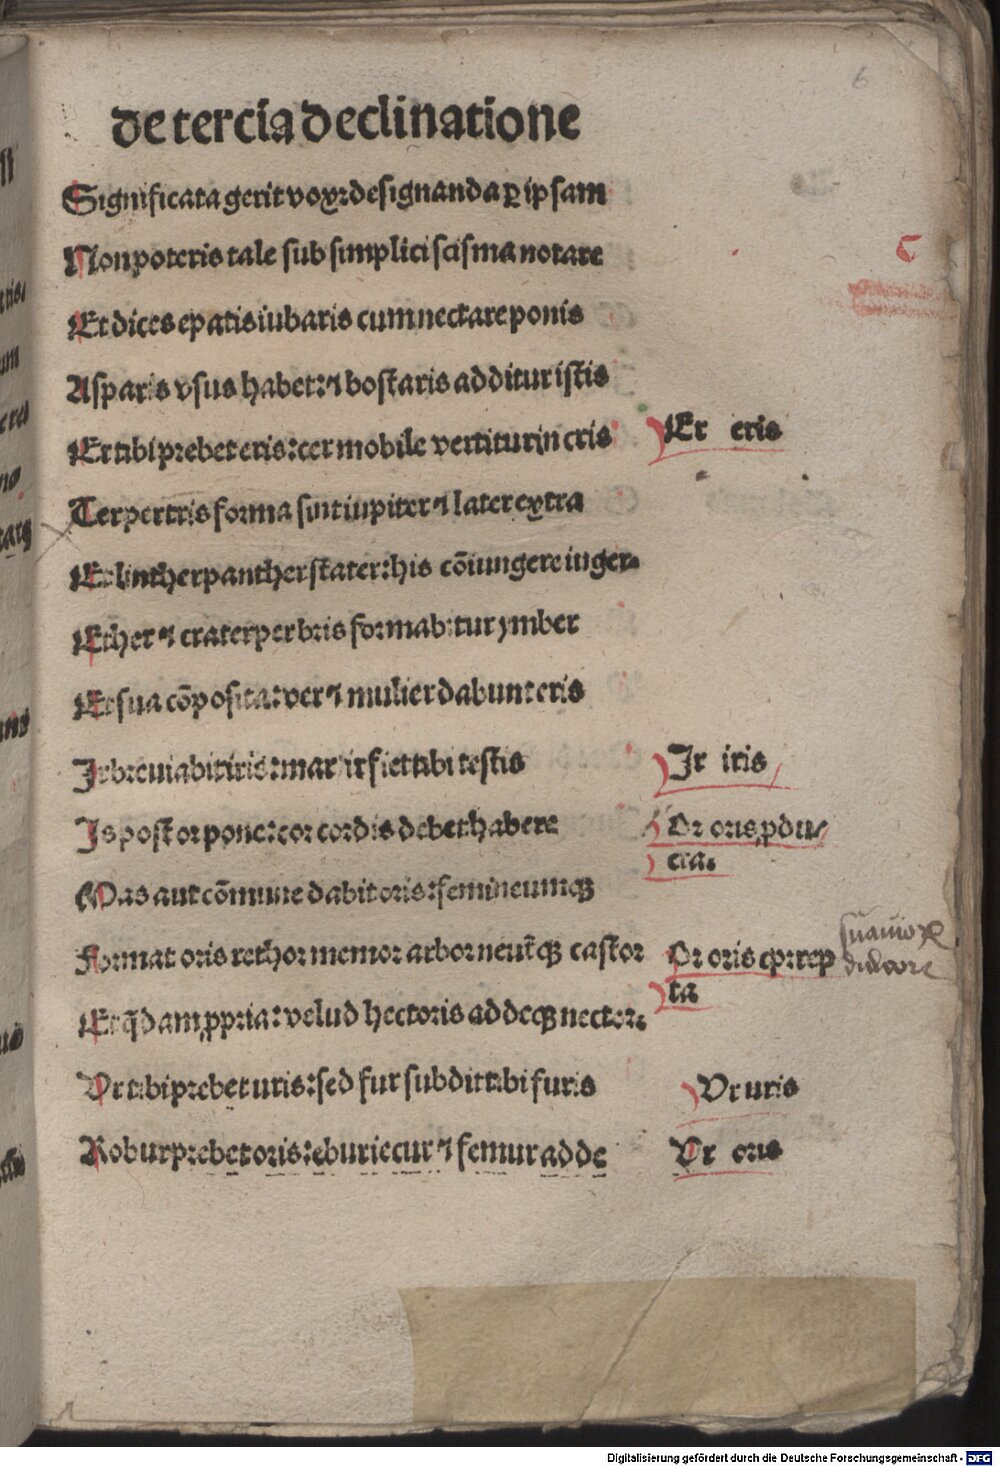 6
de tercia declinatione
Significata gerit vox: designanda ꝑ ipsam
Non poteris tale sub simplici scismanotare
Et dices epatis iubaris cum nectare ponis
Asparis vsus habet: ⁊ bostaris additur istis
Er tibi prebet eris: cer mobile vertitur in cris
Er eris
Ter per tris forma sint iupiter ⁊ later extra
Et linther panther stater: his cōiungere iuger
Ether ⁊ crater per bris formabitur ymber
Et sua cōposita: ver ⁊ mulier dabunt eris
Ir breuiabit iris: martir fiet tibi testis
Ir iris
Is post or pone: cor cordis debet habere
Or oris pdu/
cta.
Mas aut cōmune dabit oris: femineumqꝫ
Format oris rethor memor arbor neutꝝqꝫ castor
Or oris correp
ta
Et q̄dam ꝓpria: velud hectoris addeqꝫ nector.
Vr tibi prebet uris: sed fur subdit tibi furis
Vr uris
Robur prebet oris: ebur iecur ⁊ femur adde
Vr oris
Digitalisierung gefördert durch die Deutsche Forschungsgemeinschaft - DFG